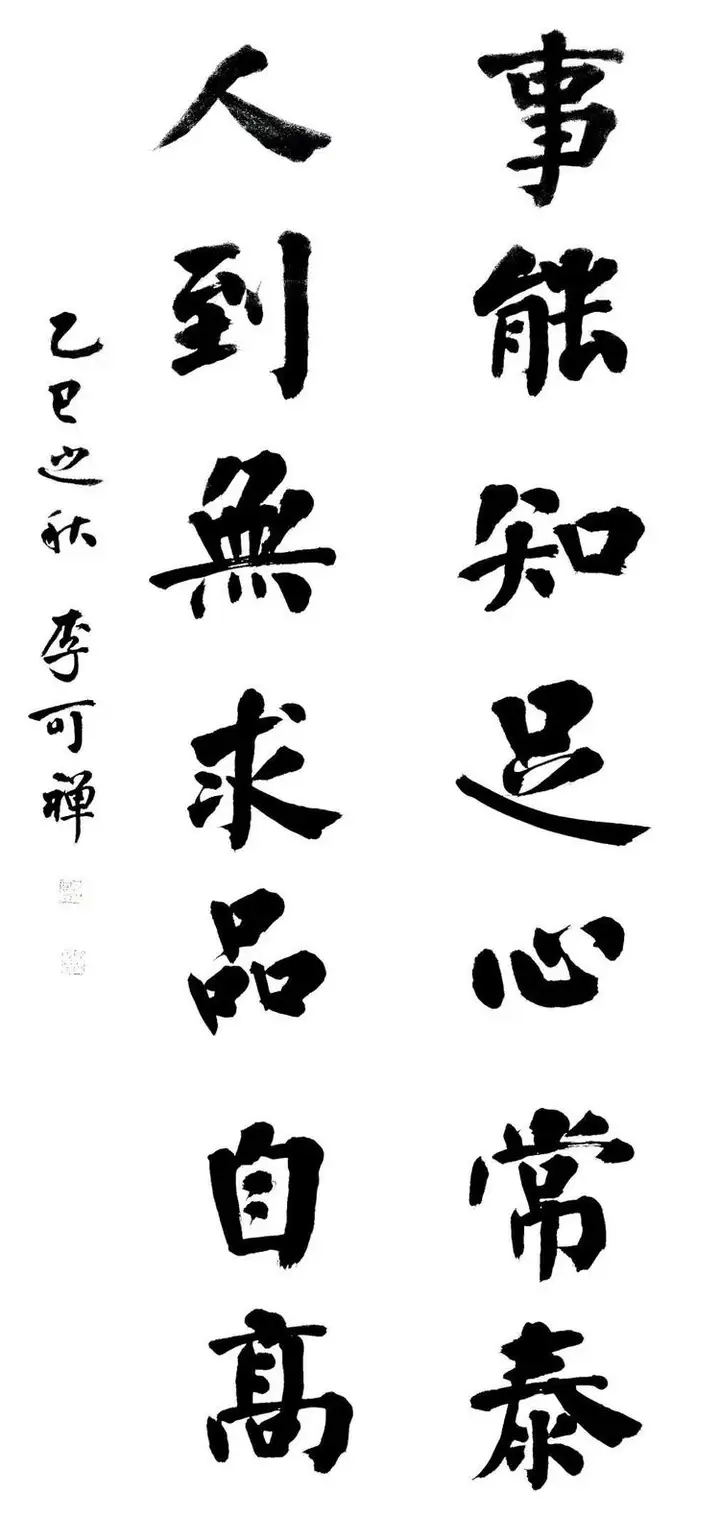 事能知足心常泰
人到無求品自高
乙巳之秋 李可禅